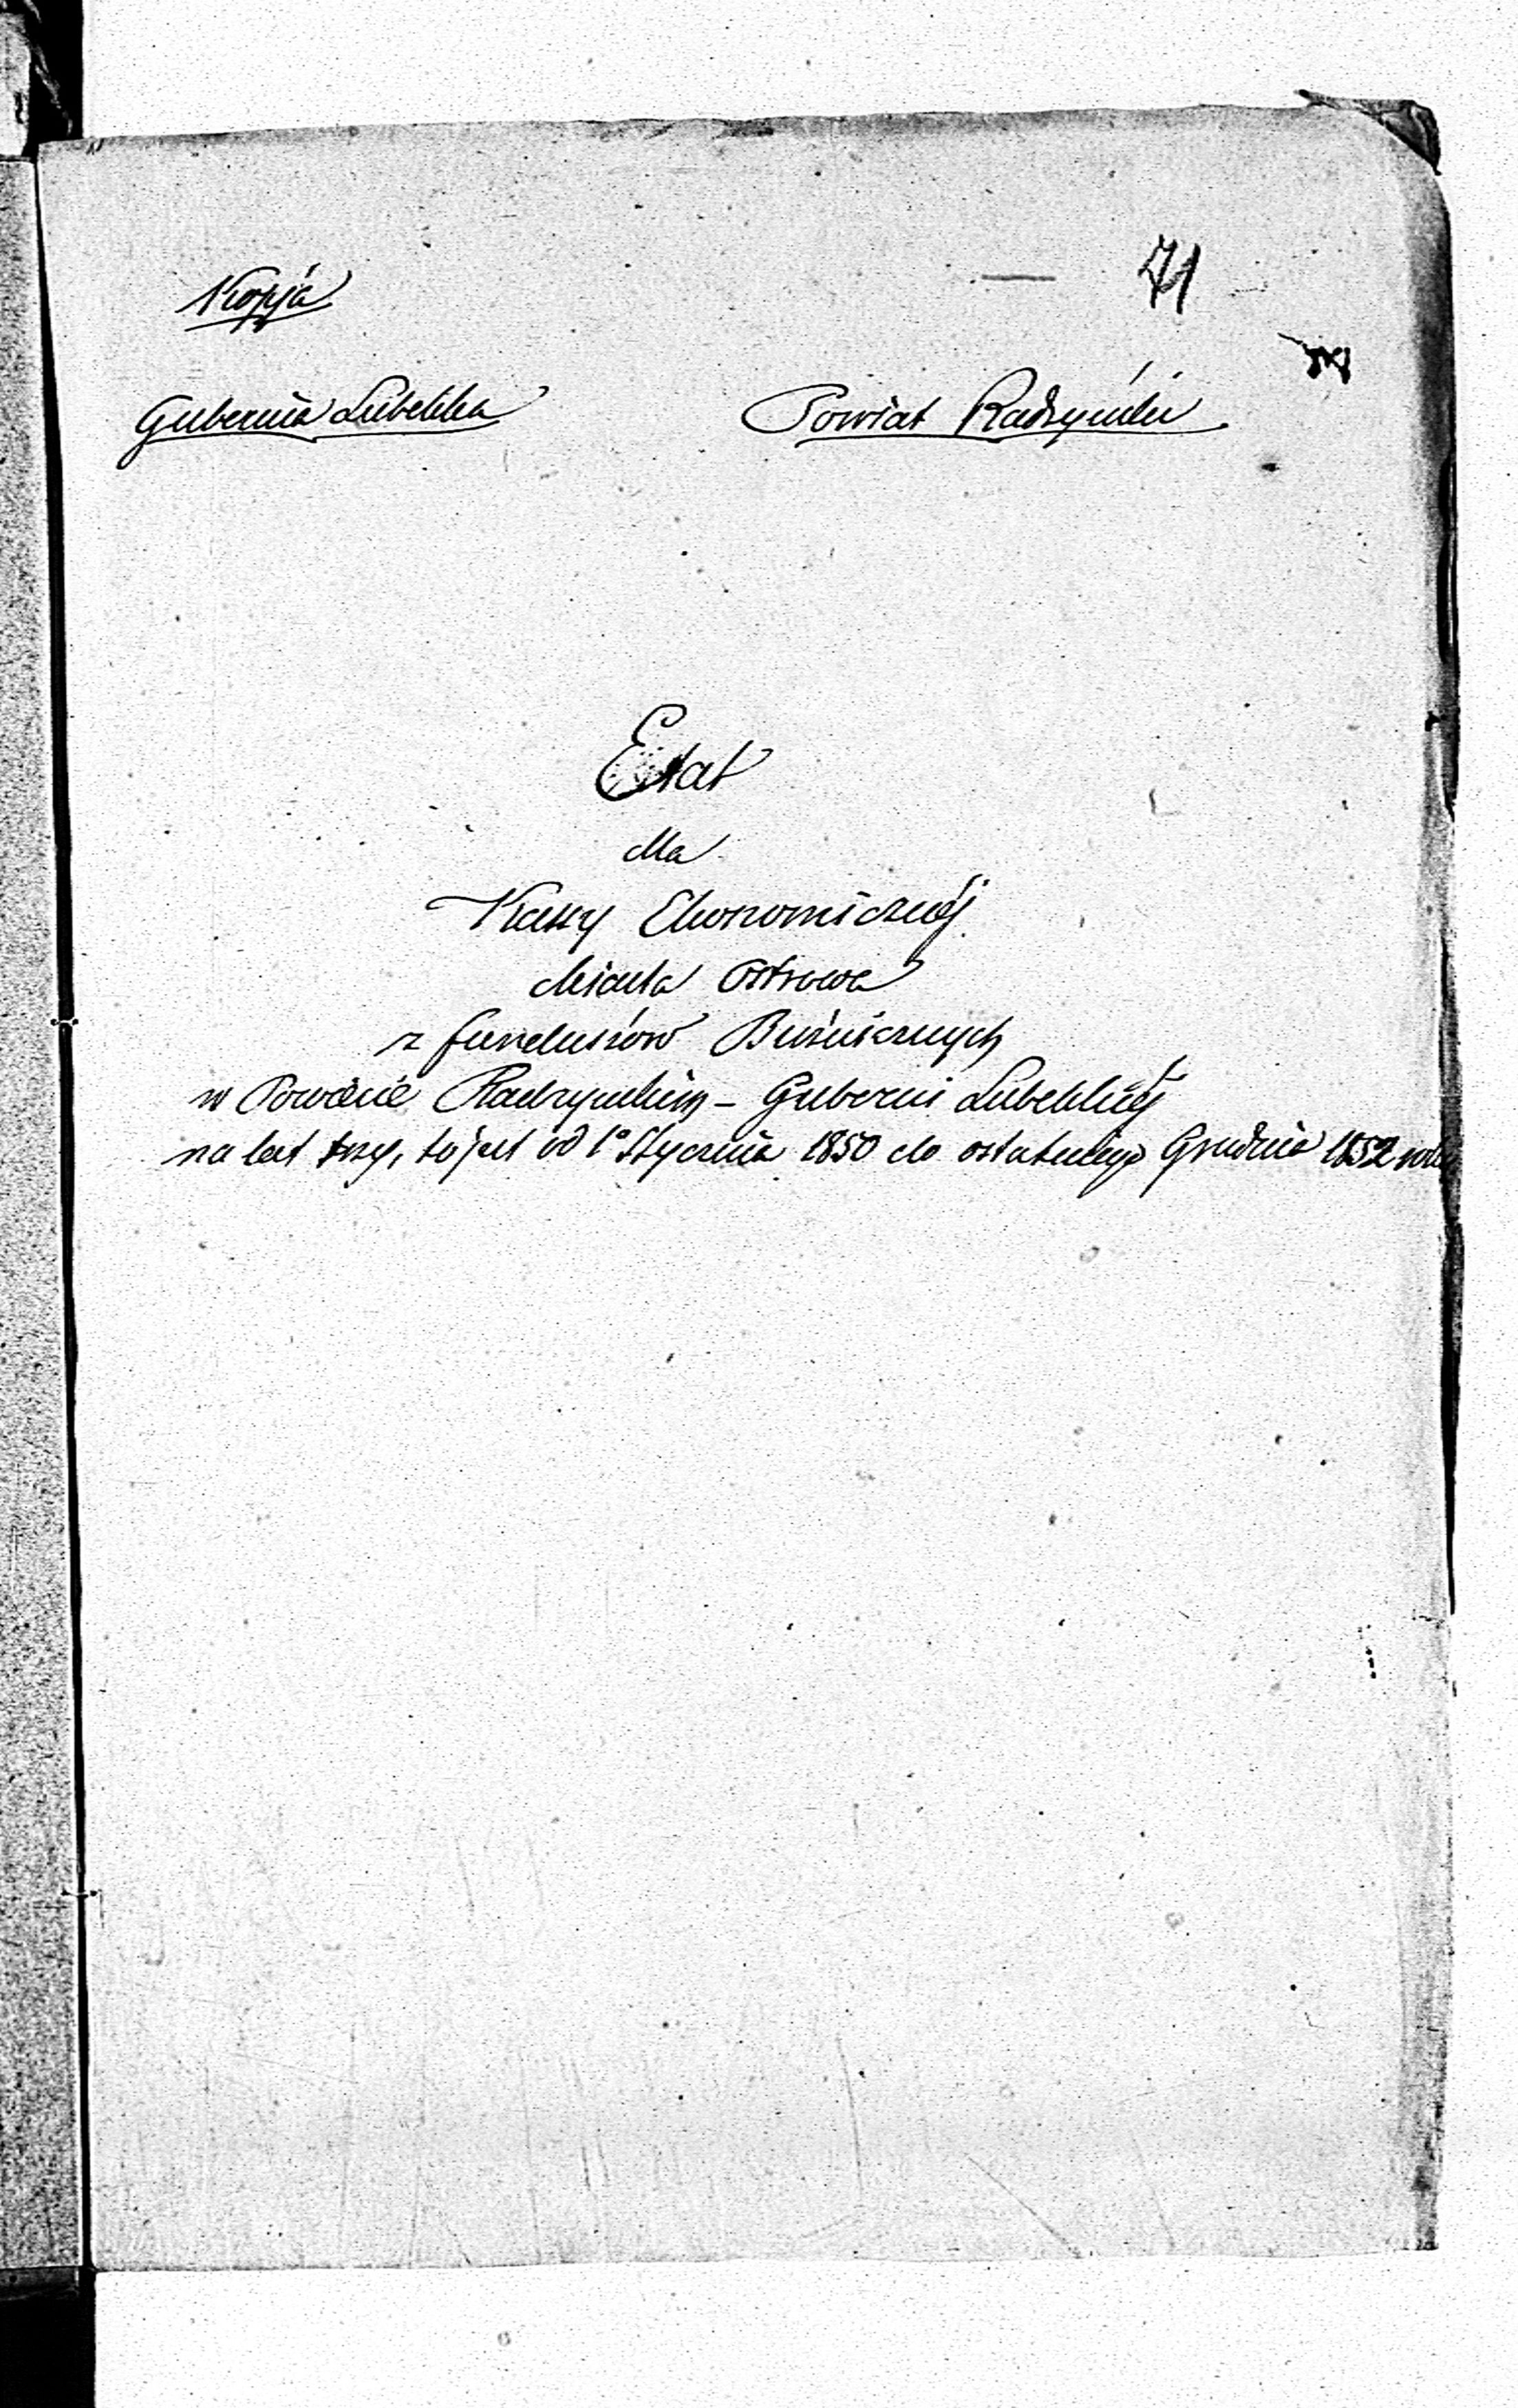 Kopja
71
Gubernia Lubelska
Powiat Radzyński
Etat
dla
Kassy Ekonomicznéj
Miasta Ostrowa
z funduszów Bużnicznych
w Powiecie Radzyńskim – Guberni Lubelskiéj
na lat trzy, to jest od 1º Stycznia 1850 do ostatniego Grudnia 1852 roku